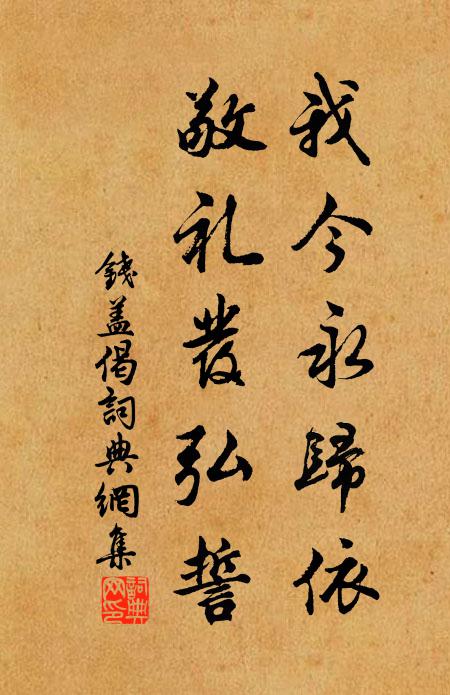 我今永歸依
敬礼發弘誓
錢蓋偈詞典網集
詞典网印